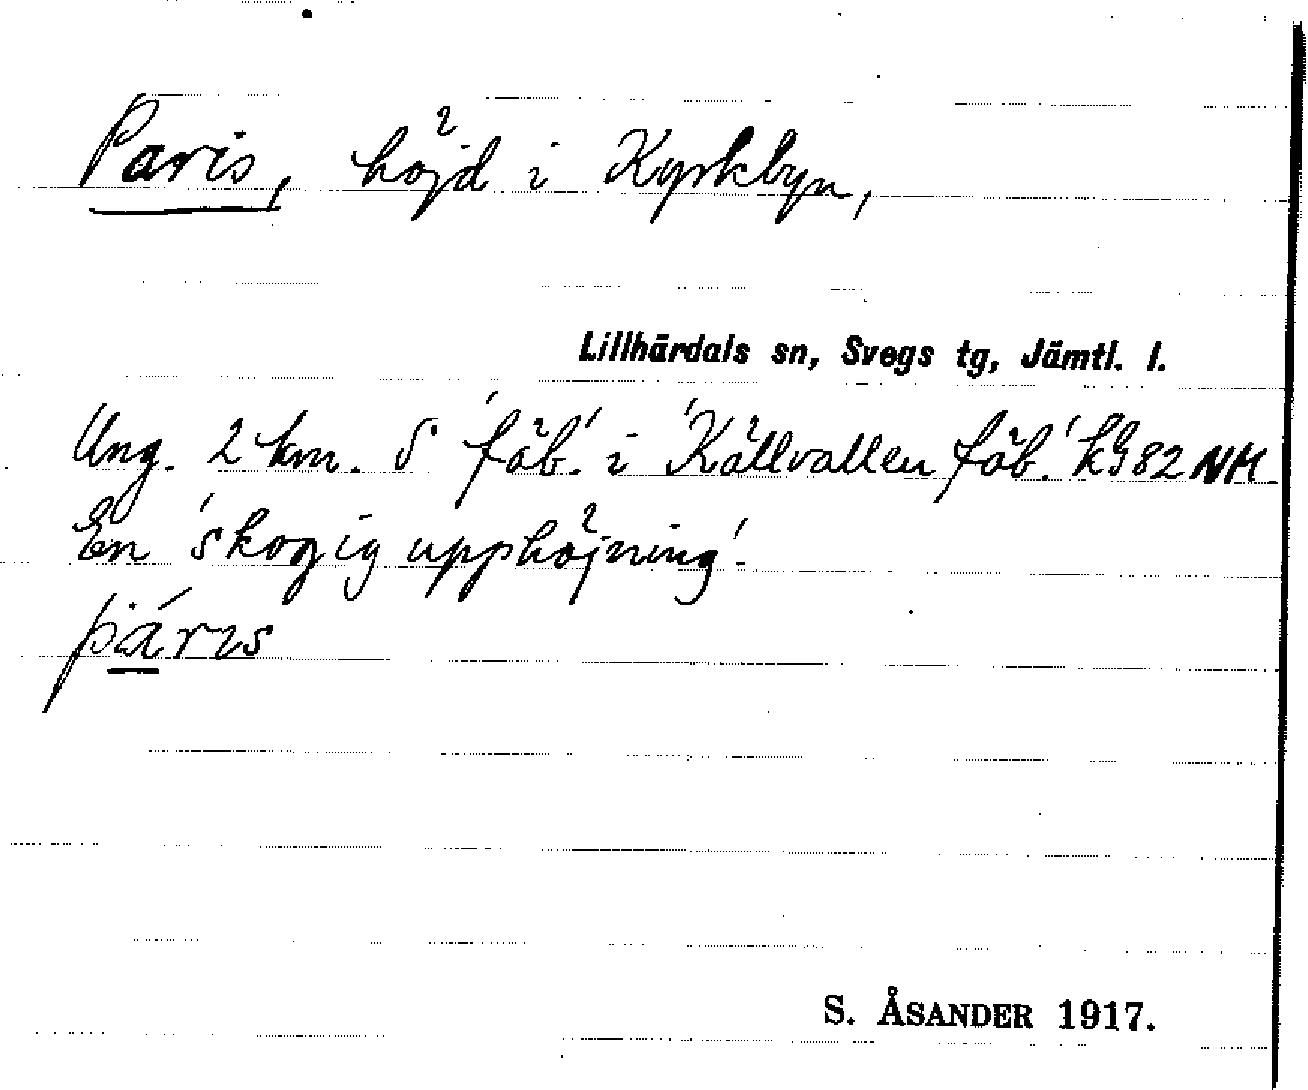 Paris, höjd i Kyrkbyn,
Lillhärdals sn, Svegs tg, Jämtl. l.
Ung. 2 km. S 'fäb.' i 'Källvallen fäb.' kg 82 NM
En 'skogig upphöjning'.
S. ÅSANDER 1917.